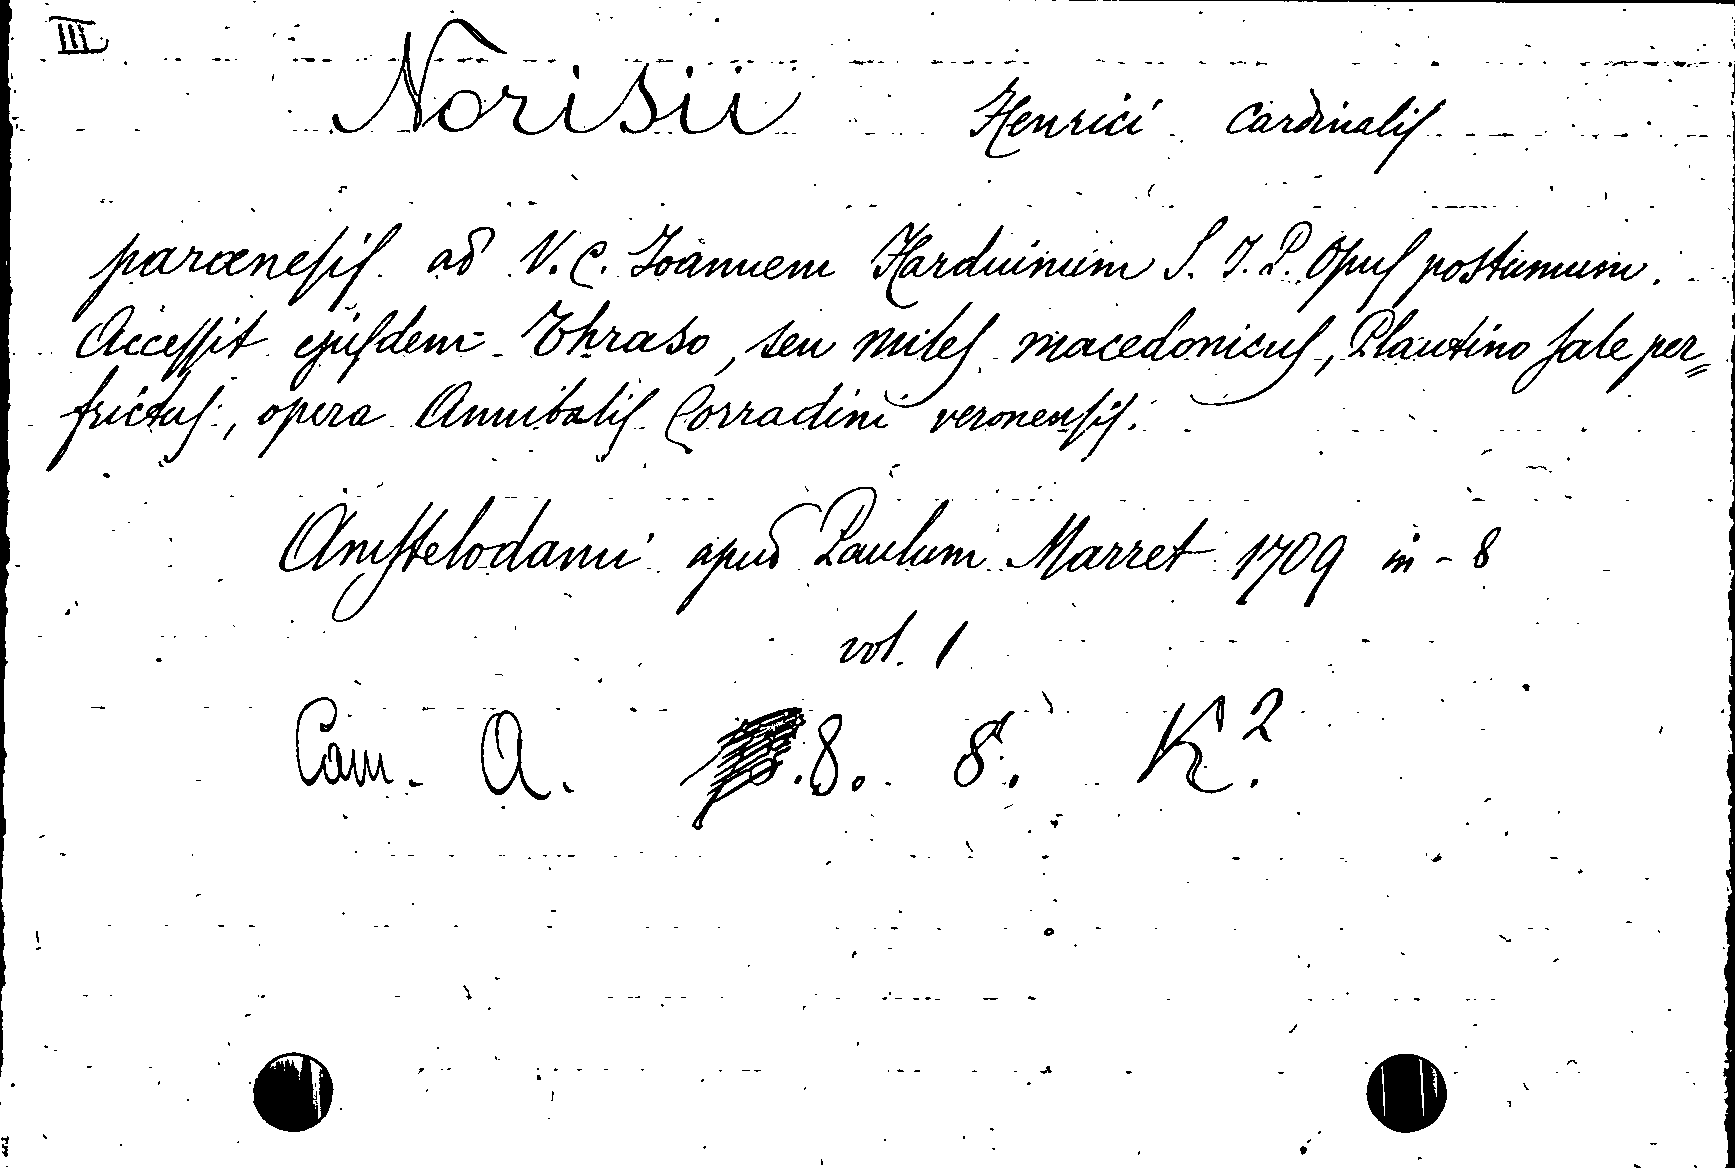 III
Norisii Henrici Cardinalis
parænesis ad V. C. Ioannem Harduinum S. J. P. Opus postumum.
Accessit ejusdem Thraso, seu miles macedonicus, Plautino sale per=
frictus:, opera Annibalis Corradini veronensis.
Amstelodami apud Paulum Marret 1709 in-8
vol. 1
Cam. A. .8. 8. K.2